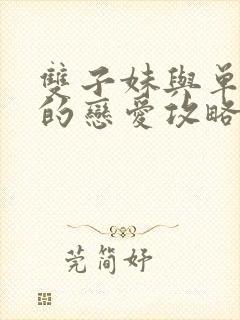 雙子妹與單
的戀愛攻略
莞簡妤